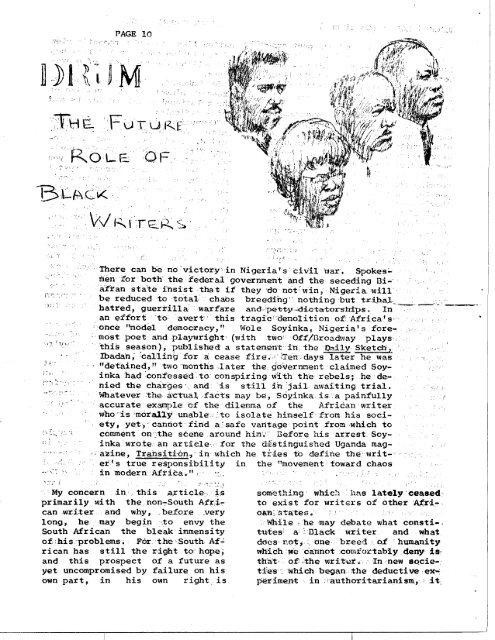 PAGE 10
DRUM
THE FUTURE
ROLE OF
BLACK
WRITERS
There can be no victory in Nigeria's civil war. Spokes-
men for both the federal government and the seceding Bi-
afran state insist that if they do not win, Nigeria will
be reduced to total chaos breeding nothing but tribal
hatred, guerrilla warfare and petty dictatorships. In
an effort to avert this tragic demolition of Africa's
once "model democracy," Wole Soyinka, Nigeria's fore-
most poet and playwright (with two Off/Broadway plays
this season), published a statement in the Daily Sketch,
Ibadan, calling for a cease fire. Ten days later he was
"detained," two months later the government claimed Soy-
inka had confessed to conspiring with the rebels; he de-
nied the charges and is still in jail awaiting trial.
Whatever the actual facts may be, Soyinka is a painfully
accurate example of the dilemna of the African writer
who is morally unable to isolate himself from his soci-
ety, yet, cannot find a safe vantage point from which to
comment on the scene around him. Before his arrest Soy-
inka wrote an article for the distinguished Uganda mag-
azine, Transition, in which he tries to define the writ-
er's true responsibility in the "movement toward chaos
in modern Africa."
My concern in this article is
primarily with the non-South Afri-
can writer and why, before very
long, he may begin to envy the
South African the bleak immensity
of his problems. For the South Af-
rican has still the right to hope;
and this prospect of a future as
yet uncompromised by failure on his
own part, in his own right is
something which has lately ceased
to exist for writers of other Afri-
can states.
While he may debate what consti-
tutes a Black writer and what
does not, one breed of humanity
which we cannot comfortably deny is
that of the writer. In new socie-
ties which began the deductive ex-
periment in authoritarianism, it